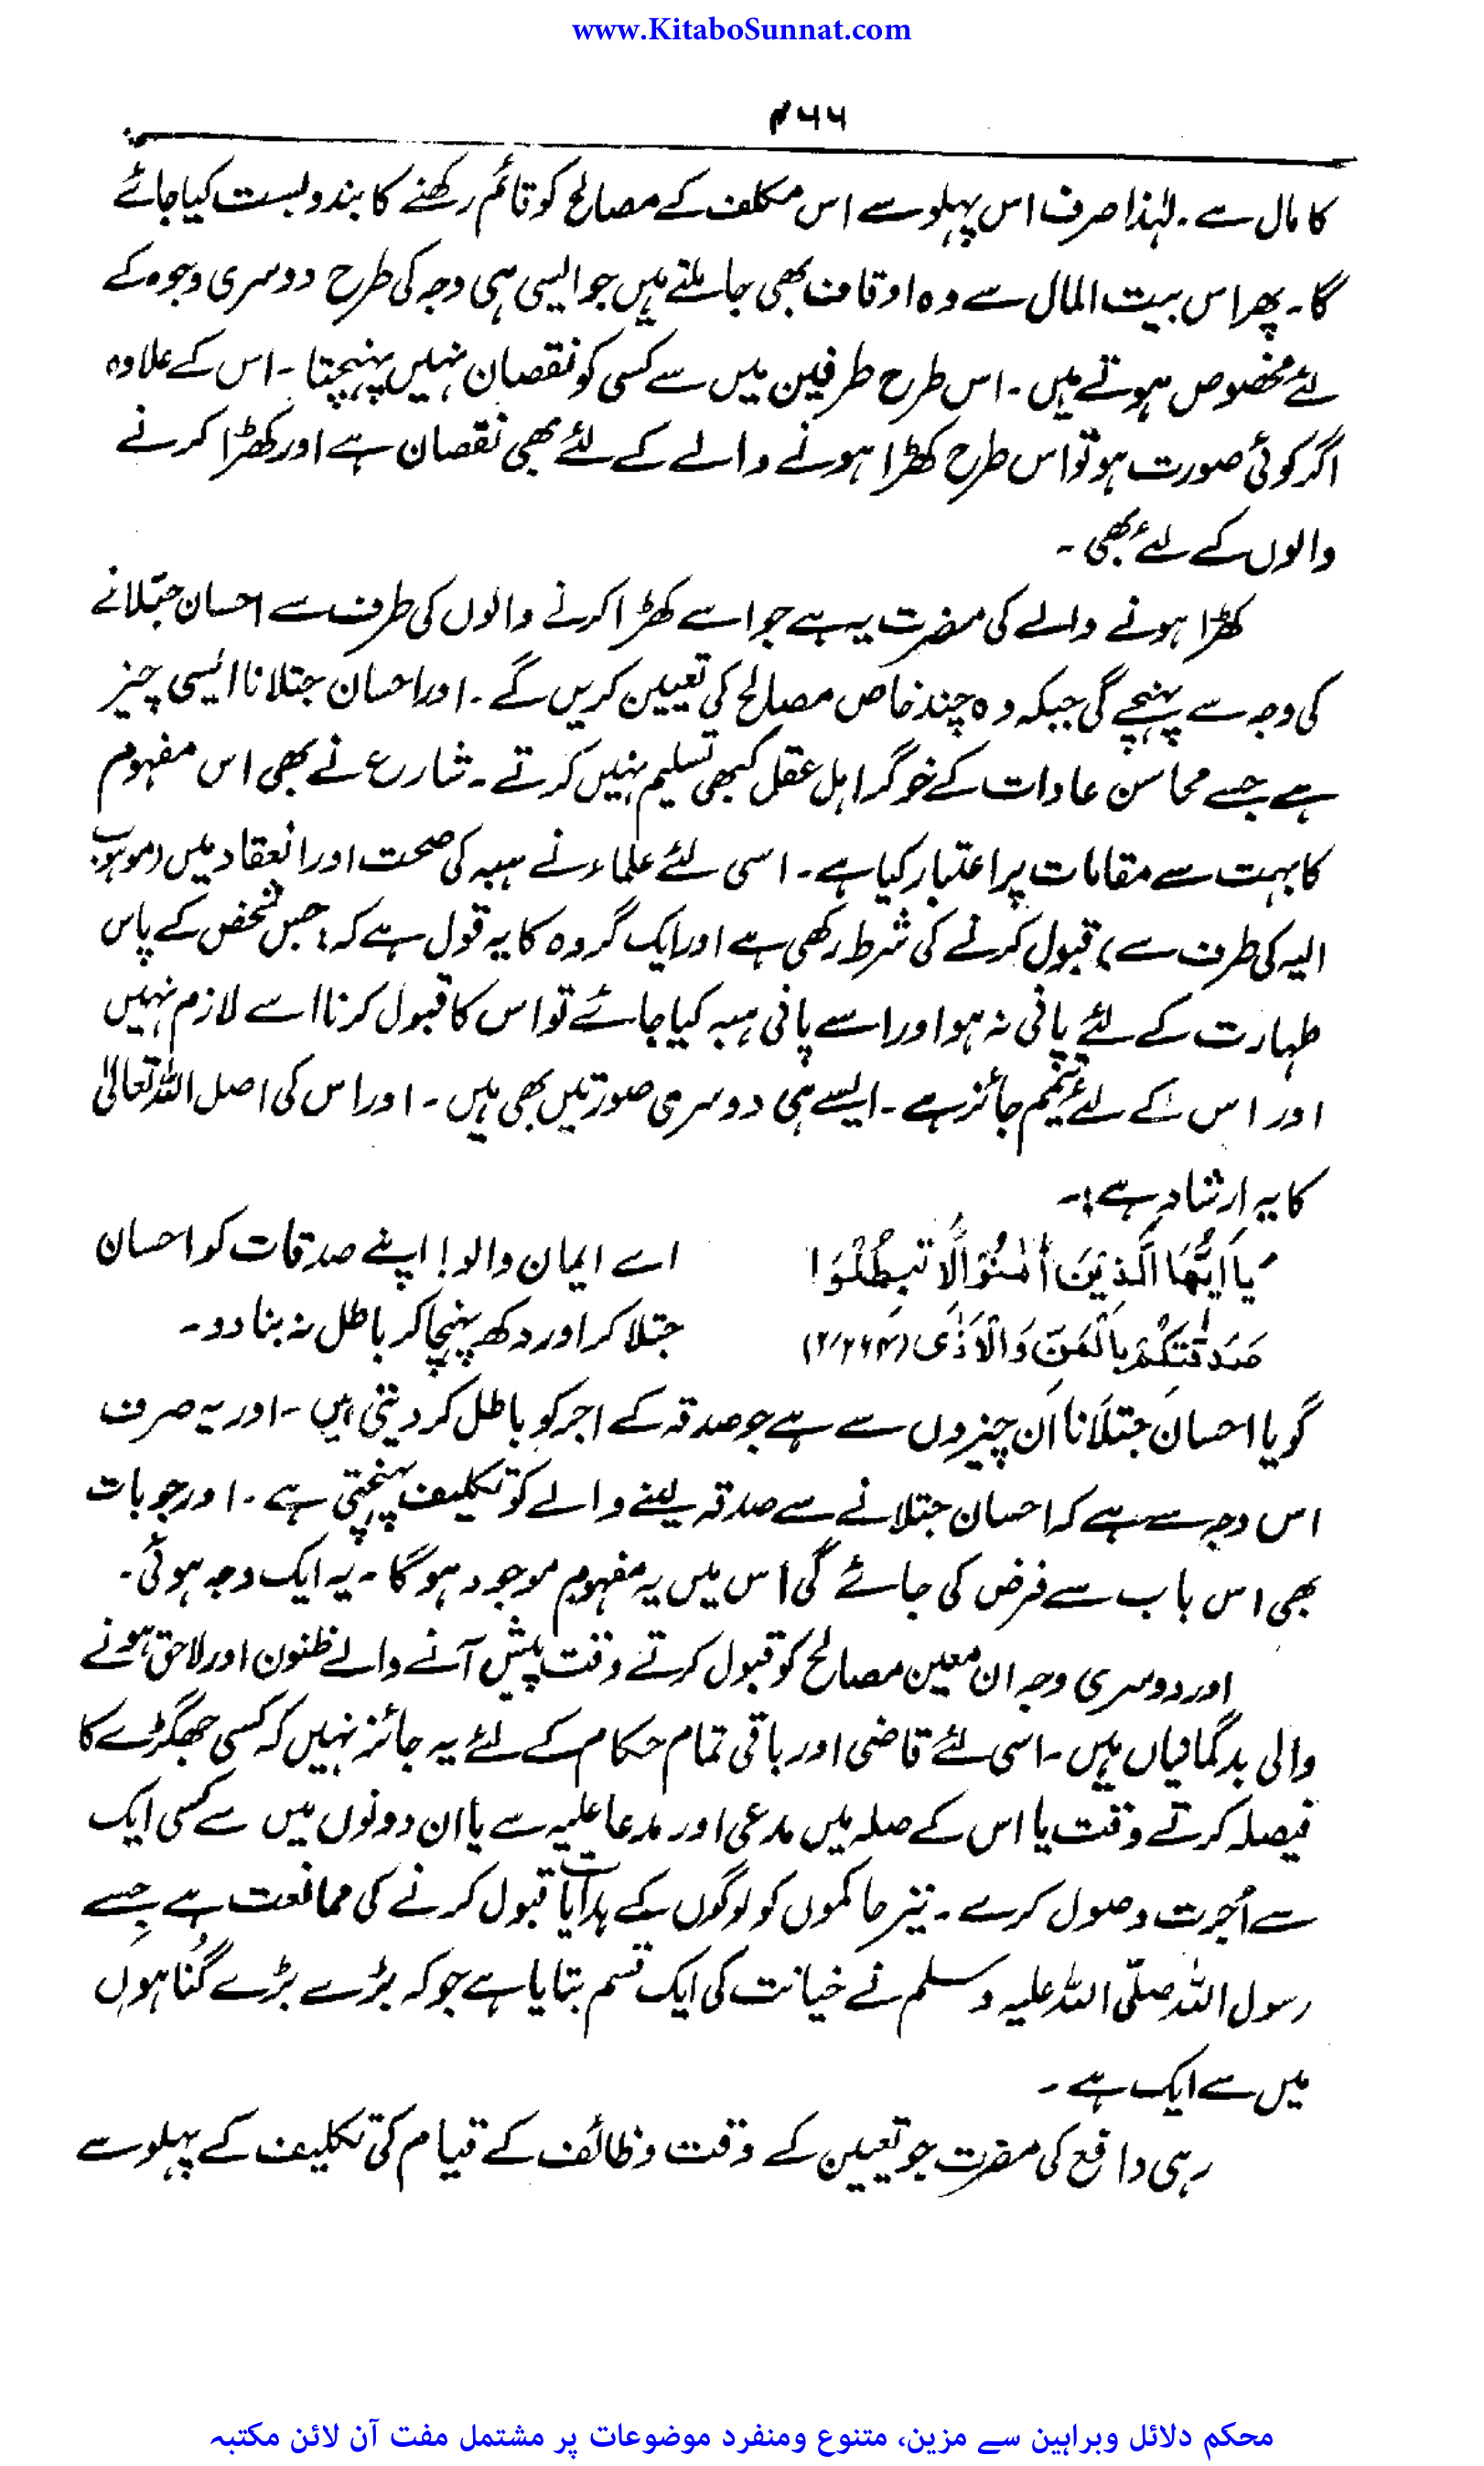 www.KitaboSunnat.com
۴۶۶
کا مال ہے۔ لہٰذا صرف اس پہلو سے اس مکلف کے مصالح کو قائم رکھنے کا بندوبست کیا جائے
گا۔ پھر اس بیت المال سے وہ اوقاف بھی جا ملتے ہیں جو ایسی ہی وجہ کی طرح دوسری وجوہ کے
لئے مخصوص ہوتے ہیں۔ اس طرح طرفین میں سے کسی کو نقصان نہیں پہنچتا۔ اس کے علاوہ
اگر کوئی صورت ہو تو اس طرح کھڑا ہونے والے کے لئے بھی نقصان ہے اور کھڑا کرنے
والوں کے لئے بھی۔
کھڑا ہونے والے کی مضرت یہ ہے جو اسے کھڑا کرنے والوں کی طرف سے احسان جتلانے
کی وجہ سے پہنچے گی جبکہ وہ چند خاص مصالح کی تعیین کریں گے۔ اور احسان جتلانا ایسی چیز
ہے جسے محاسن عادات کے خوگر اہل عقل کبھی تسلیم نہیں کرتے۔ شارع نے بھی اس مفہوم
کا بہت سے مقامات پر اعتبار کیا ہے۔ اسی لئے علماء نے ہبہ کی صحت اور انعقاد میں (موہوب
الیہ کی طرف سے) قبول کرنے کی شرط رکھی ہے اور ایک گروہ کا یہ قول ہے کہ: جس شخص کے پاس
طہارت کے لئے پانی نہ ہو اور اسے پانی ہبہ کیا جائے تو اس کا قبول کرنا اسے لازم نہیں
اور اس کے لئے تیمم جائز ہے۔ ایسے ہی دوسری صورتیں بھی ہیں۔ اور اس کی اصل اللہ تعالیٰ
کا یہ ارشاد ہے:۔
یٰاَیُّهَا الَّذِیْنَ اٰمَنُوْا لَا تُبْطِلُوْا
صَدَقٰتِكُمْ بِالْمَنِّ وَالْاَذٰی (۲/۲۶۴)
اے ایمان والو! اپنے صدقات کو احسان
جتلا کر اور دکھ پہنچا کر باطل نہ بنا دو۔
گویا احسان جتلانا ان چیزوں سے ہے جو صدقہ کے اجر کو باطل کر دیتی ہیں۔ اور یہ صرف
اس وجہ سے ہے کہ احسان جتلانے سے صدقہ لینے والے کو تکلیف پہنچتی ہے۔ اور جو بات
بھی اس باب سے فرض کی جائے گی اس میں یہ مفہوم موجود ہو گا۔ یہ ایک وجہ ہوئی۔
اور دوسری وجہ ان معین مصالح کو قبول کرتے وقت پیش آنے والے ظنون اور لاحق ہونے
والی بدگمانیاں ہیں۔ اسی لئے قاضی اور باقی تمام حکام کے لئے یہ جائز نہیں کہ کسی جھگڑے کا
فیصلہ کرتے وقت یا اس کے صلہ میں مدعی اور مدعا علیہ سے یا ان دونوں میں سے کسی ایک
سے اُجرت وصول کرے۔ نیز حاکموں کو لوگوں کے ہدایات قبول کرنے کی ممانعت ہے جِسے
رسول اللہ صلّی اللہ علیہ وسلم نے خیانت کی ایک قسم بتایا ہے جو کہ بڑے بڑے گناہوں
میں سے ایک ہے۔
رہی دافع کی مضرت جو تعیین کے وقت وظائف کے قیام کی تکلیف کے پہلو سے
محکم دلائل وبراہین سے مزین، متنوع ومنفرد موضوعات پر مشتمل مفت آن لائن مکتبہ